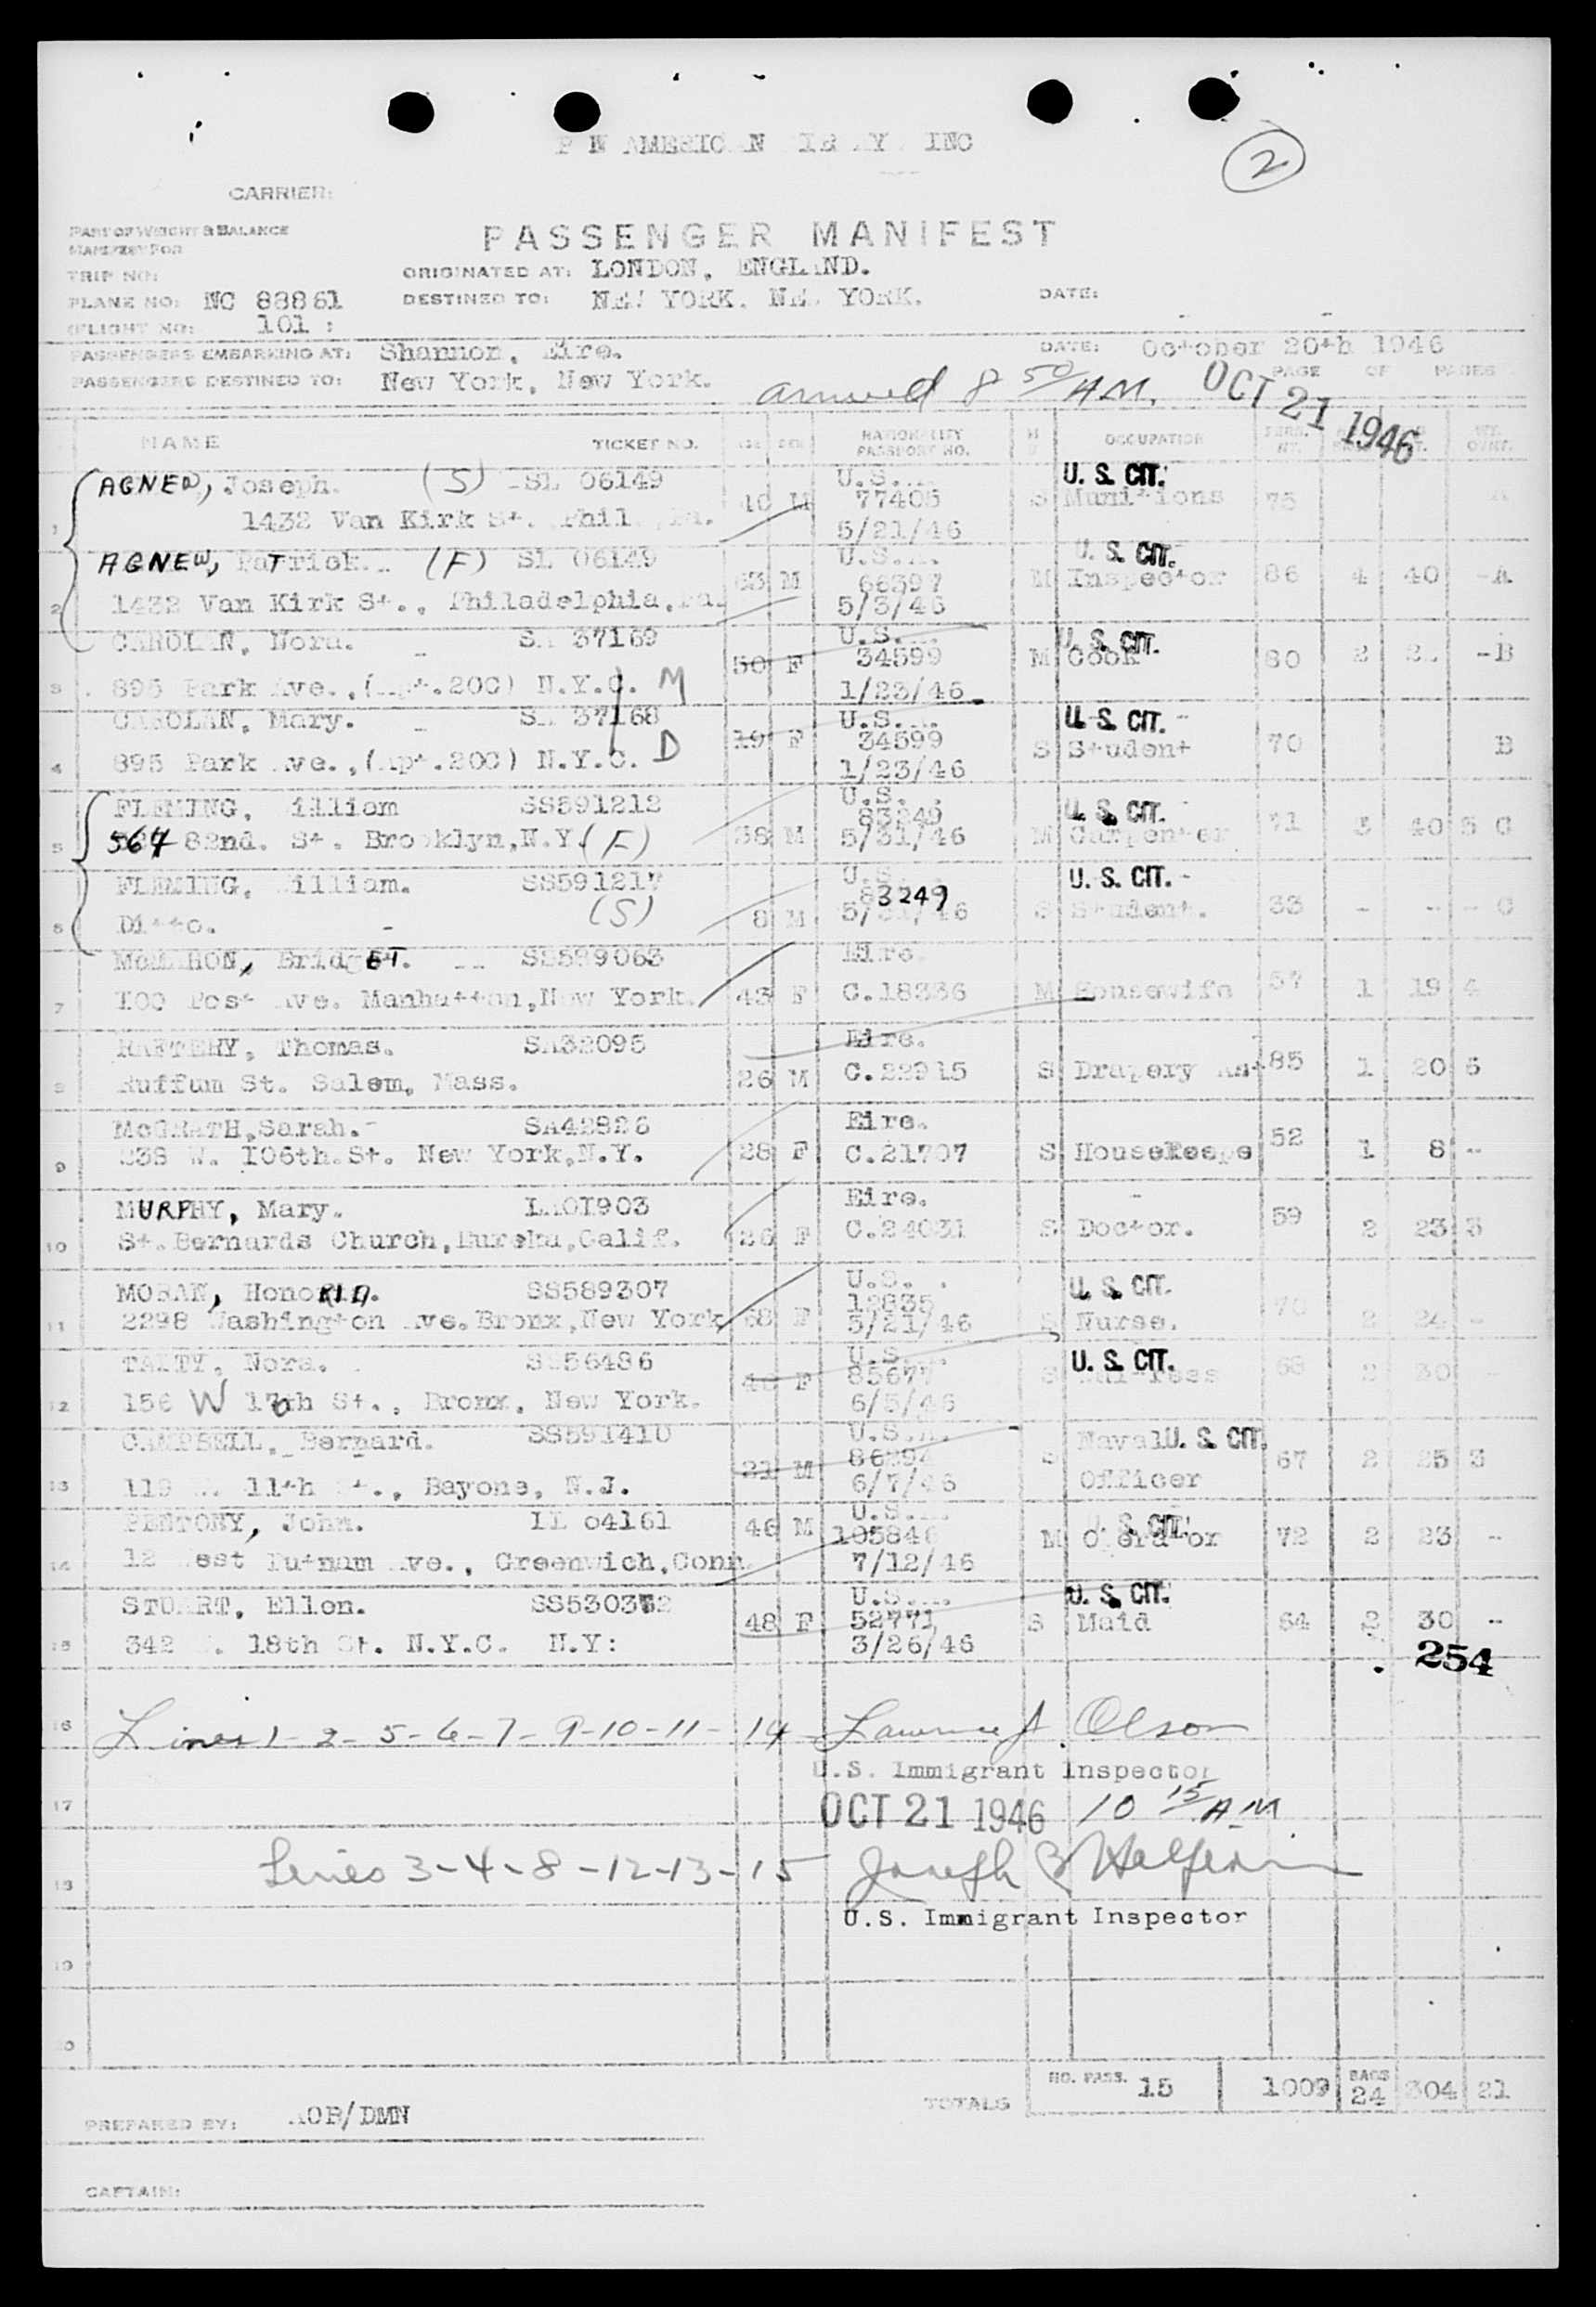 2
CARRIER:
PART OF WEIGHT & BALANCE
MANIFEST FOR
PASSENGER MANIFEST
TRIP NO:
ORIGINATED AT: LONDON, ENGLAND.
PLANE NO: NC 88861
DESTINED TO: NEW YORK. NEW YORK.
DATE:
FLIGHT NO: 101 :
PASSENGERS EMBARKING AT: Shannon, Eire.
DATE: October 20th 1946
PASSENGERS DESTINED TO: New York, New York.
PAGE OF PAGES
arrived 8 50 AM. OCT 21 1946
NAME TICKET NO. AGE SEX NATIONALITY PASSPORT NO. OCCUPATION
1 AGNEW, Joseph. (S) SL 06149 U.S. 77405 5/21/46 S Munitions U. S. CIT. 75
1432 Van Kirk St. Phil.
2 AGNEW, PaTrick. (F) SL 06149 63 M U.S. 66397 5/3/46 M Inspector U. S. CIT. 86 4 40 -A
1432 Van Kirk St., Philadelphia,
3 CAROLAN, Nora. 37169 50 F U.S. 34599 1/23/46 M Cook U. S. CIT. 80 2 -B
895 Park Ave., (Apt.20C) N.Y.C. M
4 CAROLAN, Mary. 37168 19 F U.S. 34599 1/23/46 S Student U. S. CIT. 70 B
895 Park Ave., (Apt.20C) N.Y.C. D
5 FLEMING, William SS591212 38 M U.S. 83249 5/31/46 M Carpenter U. S. CIT. 71 3 40 5 C
564 82nd. St. Brooklyn,N.Y. (F)
6 FLEMING, William. SS591217 8 M U.S. 83249 5/31/46 S Student. U. S. CIT. 33 - - - C
Ditto. (S)
7 McMAHON, BridgET. SS599063 43 F Eire. C.18336 M Housewife 57 1 19 4
100 Post Ave. Manhattan,New York.
8 RAFTERY, Thomas. SA32095 26 M Eire. C.22915 S Drapery 85 1 20 5
Buffum St. Salem, Mass.
9 McGRATH,Sarah. SA42826 28 F Eire. C.21707 S Housekeepe 52 1 8 -
238 W. 106th.St. New York,N.Y.
10 MURPHY, Mary. LA01903 26 F Eire. C.24031 S Doctor. 59 2 23 3
St.Bernards Church,Eureka,Calif.
11 MORAN, Honoria. SS589307 F U.S. 12835 5/21/46 S Nurse. U. S. CIT. 70 2 24 -
2298 Washington Ave.Bronx,New York
12 Nora. 56486 F U.S. 85677 6/5/46 S U. S. CIT. 68 2 30 -
156 W St., Bronx, New York.
13 CAMPBELL, Bernard. SS591410 M U.S.A. 6/7/46 S Naval Officer U. S. CIT. 67 2 25 3
11th St., Bayone, N.J.
14 PENTONY, John. 04161 46 M U.S. 7/12/46 M Operator U. S. CIT. 72 2 23 -
12 West Putnam Ave., Greenwich,Conn.
15 STUART, Ellen. 48 F U.S. 52771 3/26/46 S Maid U. S. CIT. 64 2 30 -
342 18th St. N.Y.C. N.Y:
254
16 Lines 1-2-5-6-7-9-10-11-14 Lawrence J. Olson
U.S. Immigrant Inspector
17 OCT 21 1946 10 15 AM
18 Lines 3-4-8-12-13-15 Joseph B Halferin
U.S. Immigrant Inspector
19
20
TOTALS NO. PASS. 15 1009 BAGS 24 304 21
PREPARED BY: AOB/DMN
CAPTAIN: